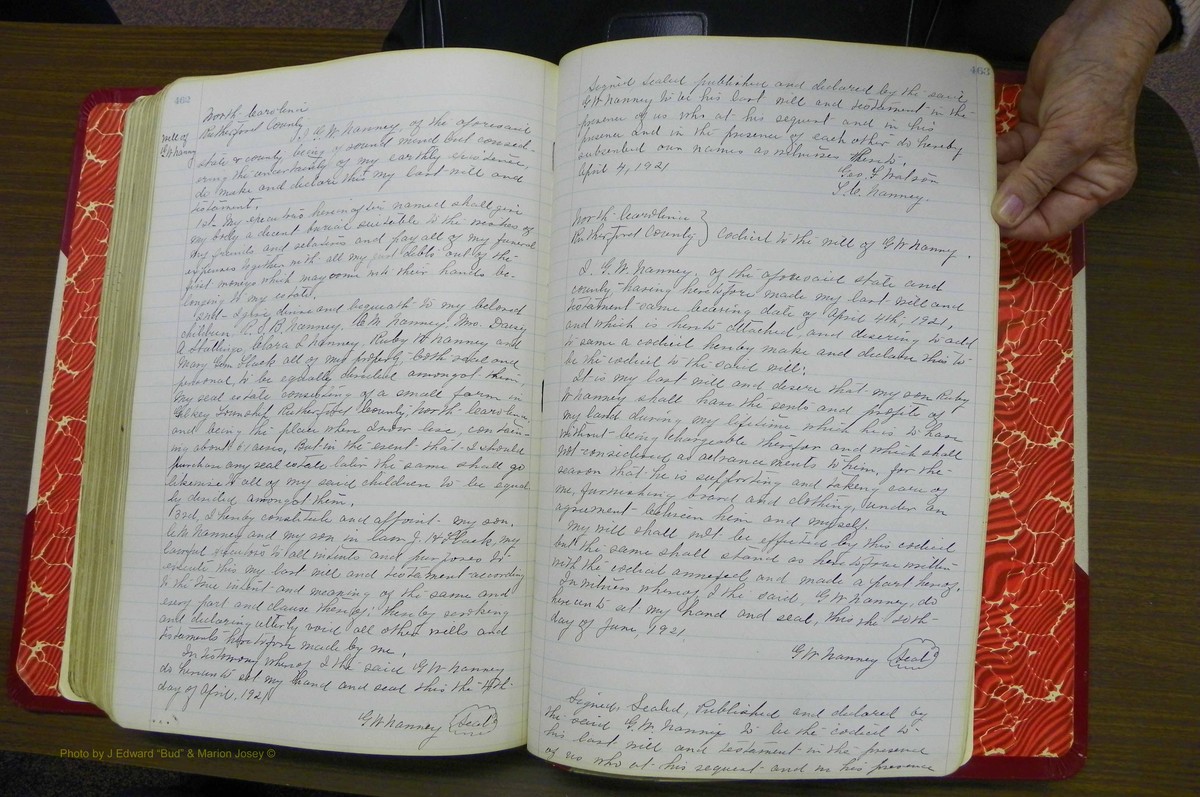 462
Will of
G.W. Nanney
North Carolina
Rutherford County
I, G. W. Nanney, of the aforesaid
state & county being of sound mind but consid-
ering the uncertainty of my earthly existence,
do make and declare this my last will and
testament.
1st. My executors hereinafter named shall give
my body a decent burial suitable to the wishes of
my friends and relations and pay all of my funeral
expenses together with all my just debts out of the
first moneys which may come into their hands be-
longing to my estate.
2nd - I give, devise and bequeath to my beloved
children B. Nanney, C. W. Nanney, Mrs. Daisy
A Stallings, Clara L Nanney, Ruby W Nanney and
Mary Lou Flack all of my property both real and
personal, to be equally divided amongst them,
my real estate consisting of a small farm in
Gilkey Township Rutherford County, North Carolina
and being the place where I now live, contain-
ing about 61 acres, But in the event that I should
purchase any real estate later the same shall go
likewise to all of my said children to be equal-
ly divided amongst them.
3rd, I hereby constitute and appoint my son,
C. W. Nanney and my son in law J. H Flack, my
lawful executors to all intents and purposes to
execute this my last will and testament according
to the true intent and meaning of the same and
every part and clause thereof: hereby revoking
and declaring utterly void all other wills and
testaments heretofore made by me,
In testimony whereof I the said G W Nanney
do hereunto set my hand and seal this the 4th
day of April, 1921
G W Nanney (Seal)
463
Signed sealed published and declared by the said
G W Nanney to be his last will and testament in the
presence of us who at his request and in his
presence and in the presence of each other do hereby
subscribed own names as witnesses thereto.
April 4, 1921
Geo. F Watson
L. C. Nanney.
North Carolina }
Rutherford County } Codicil to the will of G W Nanney.
I, G. W. Nanney, of the aforesaid state and
county having heretofore made my last will and
testament same bearing date of April 4th 1921,
and which is hereto attached, and desiring to add
to same a codicil hereby make and declare this to
be the codicil to the said will:
It is my last will and desire that my son Ruby
W Nanney shall have the rents and profits of
my land during my lifetime which he is to have
without being chargeable therefor and which shall
not considered as advancements to him, for the
reason that he is supporting and taking care of
me, furnishing board and clothing, under an
agreement between him and myself.
My will shall not be effected by this codicil
but the same shall stand as heretofore written
with the codicil annexed and made a part hereof,
In witness whereof, I the said, G W Nanney, do
hereunto set my hand and seal, this the 20th
day of June, 1921
G W Nanney (Seal)
Signed, Sealed, Published and declared by
the said G. W. Nanney to be the codicil to
his last will and testament in the presence
of us who at his request and in his presence
Photo by J Edward "Bud" & Marion Josey ©